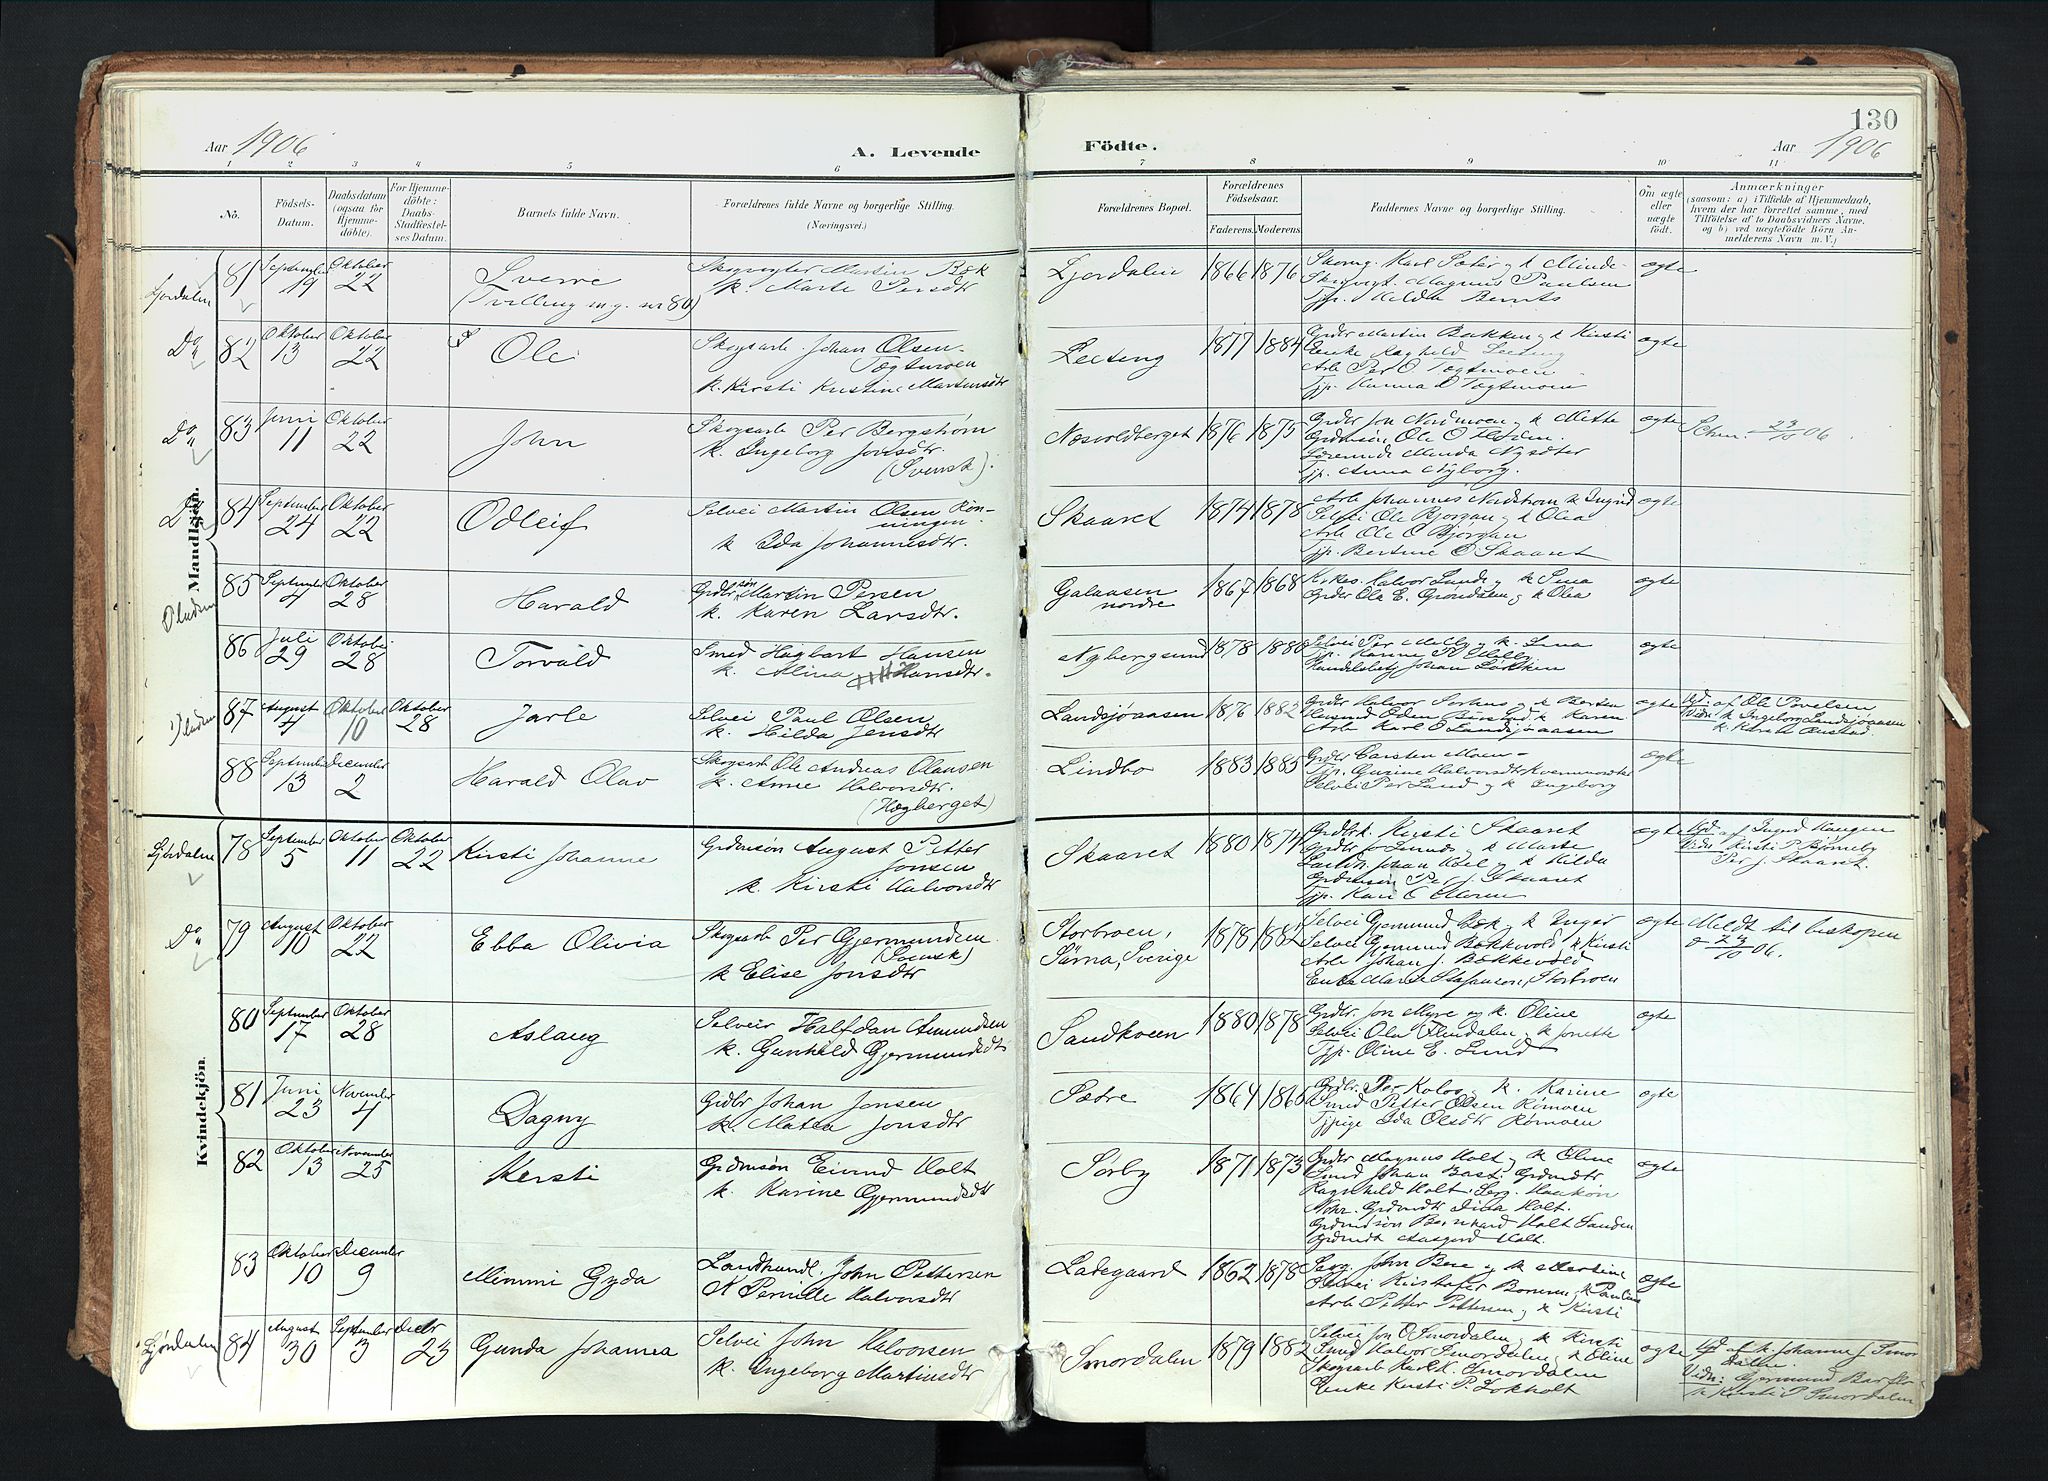 130
Aar 1906
A. Levende
Födte.
Aar 1906
1 2 3 4 5 6 7 8 9 10 11
No.
Födsels-
Datum.
Daabsdatum
(ogsaa for
Hjemme-
döbte).
For Hjemme-
döbte:
Daabs-
Stadfæstel-
ses Datum.
Barnets fulde Navn.
Forældrenes fulde Navne og borgerlige Stilling.
(Næringsvei.)
Forældrenes Bopæl.
Forældrenes
Födselsaar.
Faderens. Moderens.
Faddernes Navne og borgerlige Stilling.
Om ægte
eller
uægte
födt.
Anmærkninger
(saasom: a) i Tilfælde af Hjemmedaab,
hvem der har forrettet samme, med
Tilföielse af to Daabsvidners Navne,
og b) ved uægtefödte Börn An-
melderens Navn m. V.)
Mandkjön.
Ljørdalen
81 September 19 Oktober 22
Sverre
(Tvilling m. g. nr 80)
Skogvogter Martin Bæk
k. Marte Persdtr
Ljørdalen 1866 1876
Skomg. Karl Sæter og k Minde
Skogvgt. Magnus Paulsen
Tjp. Hilda Bernts
ægte
Do
82 Oktober 13 Oktober 22
Ole
Skogsarb. Johan Olsen
Tægtmoen
k. Kirsti Kristine Martinsdtr
Lecteng 1877 1884
Grdbr Martin Bakken og k Kirsti
Enke Raghild Lecteng
Arb Per O Tægtmoen
Tjp. Hanna O Tægtmoen
ægte
Do
83 Juni 11 Oktober 22
John
Skogsarb Per Bergstrøm
k. Ingeborg Jonsdtr.
(Svensk).
Næsvoldberget 1876 1875
Grdbr Jon Nordmoen og k Mette
Grdmsøn Ole O
Minda Nysæter
Tjp. Anna Nyborg.
ægte
23/10 06.
Do
84 September 24 Oktober 22
Odleif
Selvei Martin Olsen Røn-
ningen
k Ida Johannesdtr.
Skaaret 1874 1878
Arb Johannes Nordstrøm k Ingrid
Selvei Ole Bjørgan og k Olea
Arb Ole O Bjørgan
Tjp. Bertine O. Skaaret
ægte
85 September 4 Oktober 28
Harald
Grdbrsøn Martin Persen
k. Karen Larsdtr.
Galaasen
nordre 1867 1868
Kirkes. Halvor Lunde og k Sina
Grdbr Ole E. Grøndalen og k Olea
ægte
86 Juli 29 Oktober 28
Torvald
Smed Hagbart Hansen
k. Alina Hansdtr.
Nybergsund 1878 1880
Selvei Per Melby og k. Lina
Tjp. Karine P. Melby
Handelsbetj Johan Løkken
ægte
87 August 4 Oktober 10 Oktober 28
Jarle
Selvei Paul Olsen
k. Hilda Jensdtr
Landsjøaasen 1876 1882
Grdbr Halvor Sorhus og k Berthe
Husmd Peder Bustad, k Karen
Arb Karl O Landsjøaasen
ægte
Hjd. af Ole Povelsen
Vidn: k Ingeborg Landsjøaasen
k. Karen Bustad.
88 September 13 December 2
Harald Olav
Skogsarb Ole Andreas Olausen
k. Anne Halvorsdtr.
(Høgberget)
Lindbo 1883 1885
Grdbr Carsten Moen
Tjp. Gurine Halvorsdtr Kvernmosæter
Selvei Per Lund og k Ingeborg
ægte
Kvindekjön.
Ljørdalen
78 September 5 Oktober 11 Oktober 22
Kirsti Johanne
Grdmsøn August Petter
Jonsen
k. Kirsti Halvorsdtr
Skaaret 1880 1874
Grdbrk. Kirsti Skaaret
Johan Moel og k Hilda
Grdmsøn Per J. Skaaret
Tjp. Kari E Moren
ægte
Hjd. af Ingrid Haugen
Vidn: Kirsti P. Bjørneby
Per J. Skaaret.
Do
79 August 10 Oktober 22
Ebba Olivia
Skogsarb Per Gjermundsen
(Svensk)
k Elise Jonsdtr
Storbroen,
Särna, Sverige 1878 1882
Selvei Gjermund Bæk, k Inger
Selvei Gjermund Bækkevold k Kirsti
Arb Johan J. Bækkevold
Enke Marit Stefanson, Storbroen
ægte
Meldt til biskopen
d 23/10 06.
80 September 17 Oktober 28
Aslaug
Selveir Halfdan Amundsen
k. Gunhild Gjermundsdtr
Sandkveen 1880 1878
Grdbr. Jon Myre og k. Oline
Selvei Ola Flendalen, k Jonette
Tjp. Oline E. Lund
ægte
81 Juni 23 November 4
Dagny
Grdbr Johan Jonsen
k. Matea Jonsdtr
Sætre 1864 1865
Grdbr. Per Kolos og k. Karine
Smed Petter Olsen Rømoen
Tjpige Ida Olsdtr Rømoen
ægte
82 Oktober 13 November 25
Kersti
Grdmsøn Eivind Holt
k. Karine Gjermundsdtr
Sørby 1871 1873
Grdbr Magnus Holt og k Oline
Smed Johan Bast; Grdmdtr
Ragnhild Holt, Serg. Haakon
Nohr. Grdmdtr Dina Holt.
Grdmsøn Bernhard Holt Sanden
Grdmdt Aasgerd Holt.
ægte
83 Oktober 10 December 9
Mimmi Gyda
Landhandl. John Pettersen
k Pernille Halvorsdtr
Ladegaard 1862 1878
Serg. John Bere og k Martine
Selvei Kristofer Bonem, k Pauline
Arb Petter Pettersen og k Kirsti
ægte
Ljørdalen
84 August 30 September 3 Decbr 23
Gunda Johanna
Selvei John Halvorsen
k. Ingeborg Martinsdtr
Smordalen 1879 1882
Selvei Jon O Smordalen og k Kirsti
Smed Halvor Smordalen, k Oline
Skogsarb Karl K. Smordalen
Enke Kirsti P. Lokholt
ægte
Hjd af k. Johanne J. Smor-
dalen.
Vidn: Gjermund
k Kirsti P Smordalen